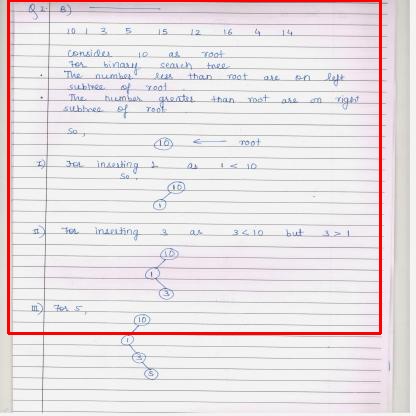 Q 2. B)
10 1 3 5 15 12 16 4 14
Consider 10 as root
For binary search tree
. The number less than root are on left
subtree of root.
. The number greater than root are on right
subtree of root.
So,
10 ← root
I) For inserting 1 as 1 < 10
So.
10
1
II) For inserting 3 as 3 < 10 but 3 > 1
10
1
3
III) For 5,
10
1
3
5